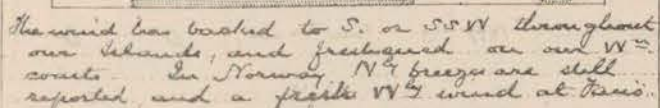 The wind has backed to S. or SSW throughout
our Islands, and freshened on our Wn.
coasts. In Norway Nly breezes are still
reported and a fresh Wly wind at Paris.